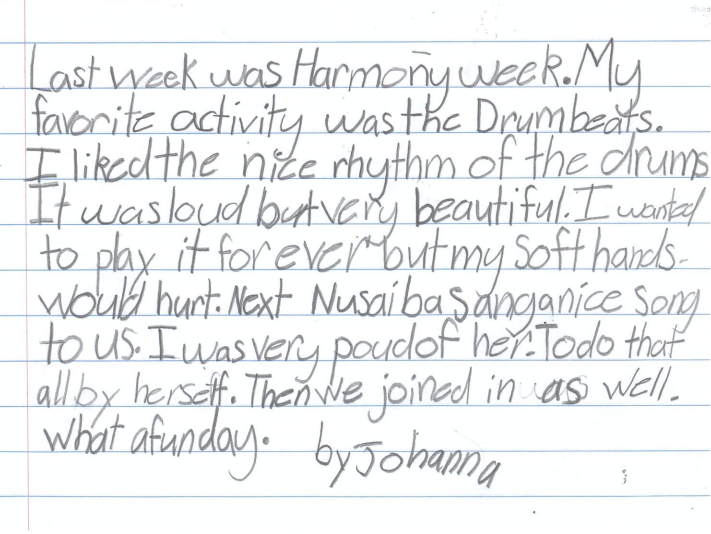 Last week was Harmony week. My
favorite activity was the Drumbeats.
I liked the nice rhythm of the drums
It was loud but very beautiful. I wanted
to play it for ever but my soft hands
would hurt. Next Nusaiba sang a nice song
to us. I was very poud of her. To do that
all by herself. Then we joined in as well.
What a fun day. by Johanna